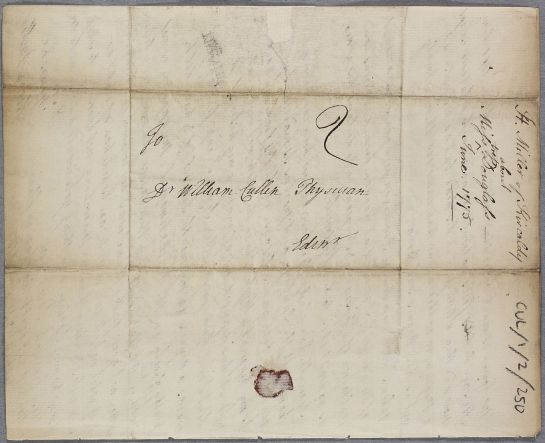 To
2
Dr William Cullen Physician
Edinr
Miller of Kircaldy
about
Miss Douglass
June 1775.
CUL/1/2/250